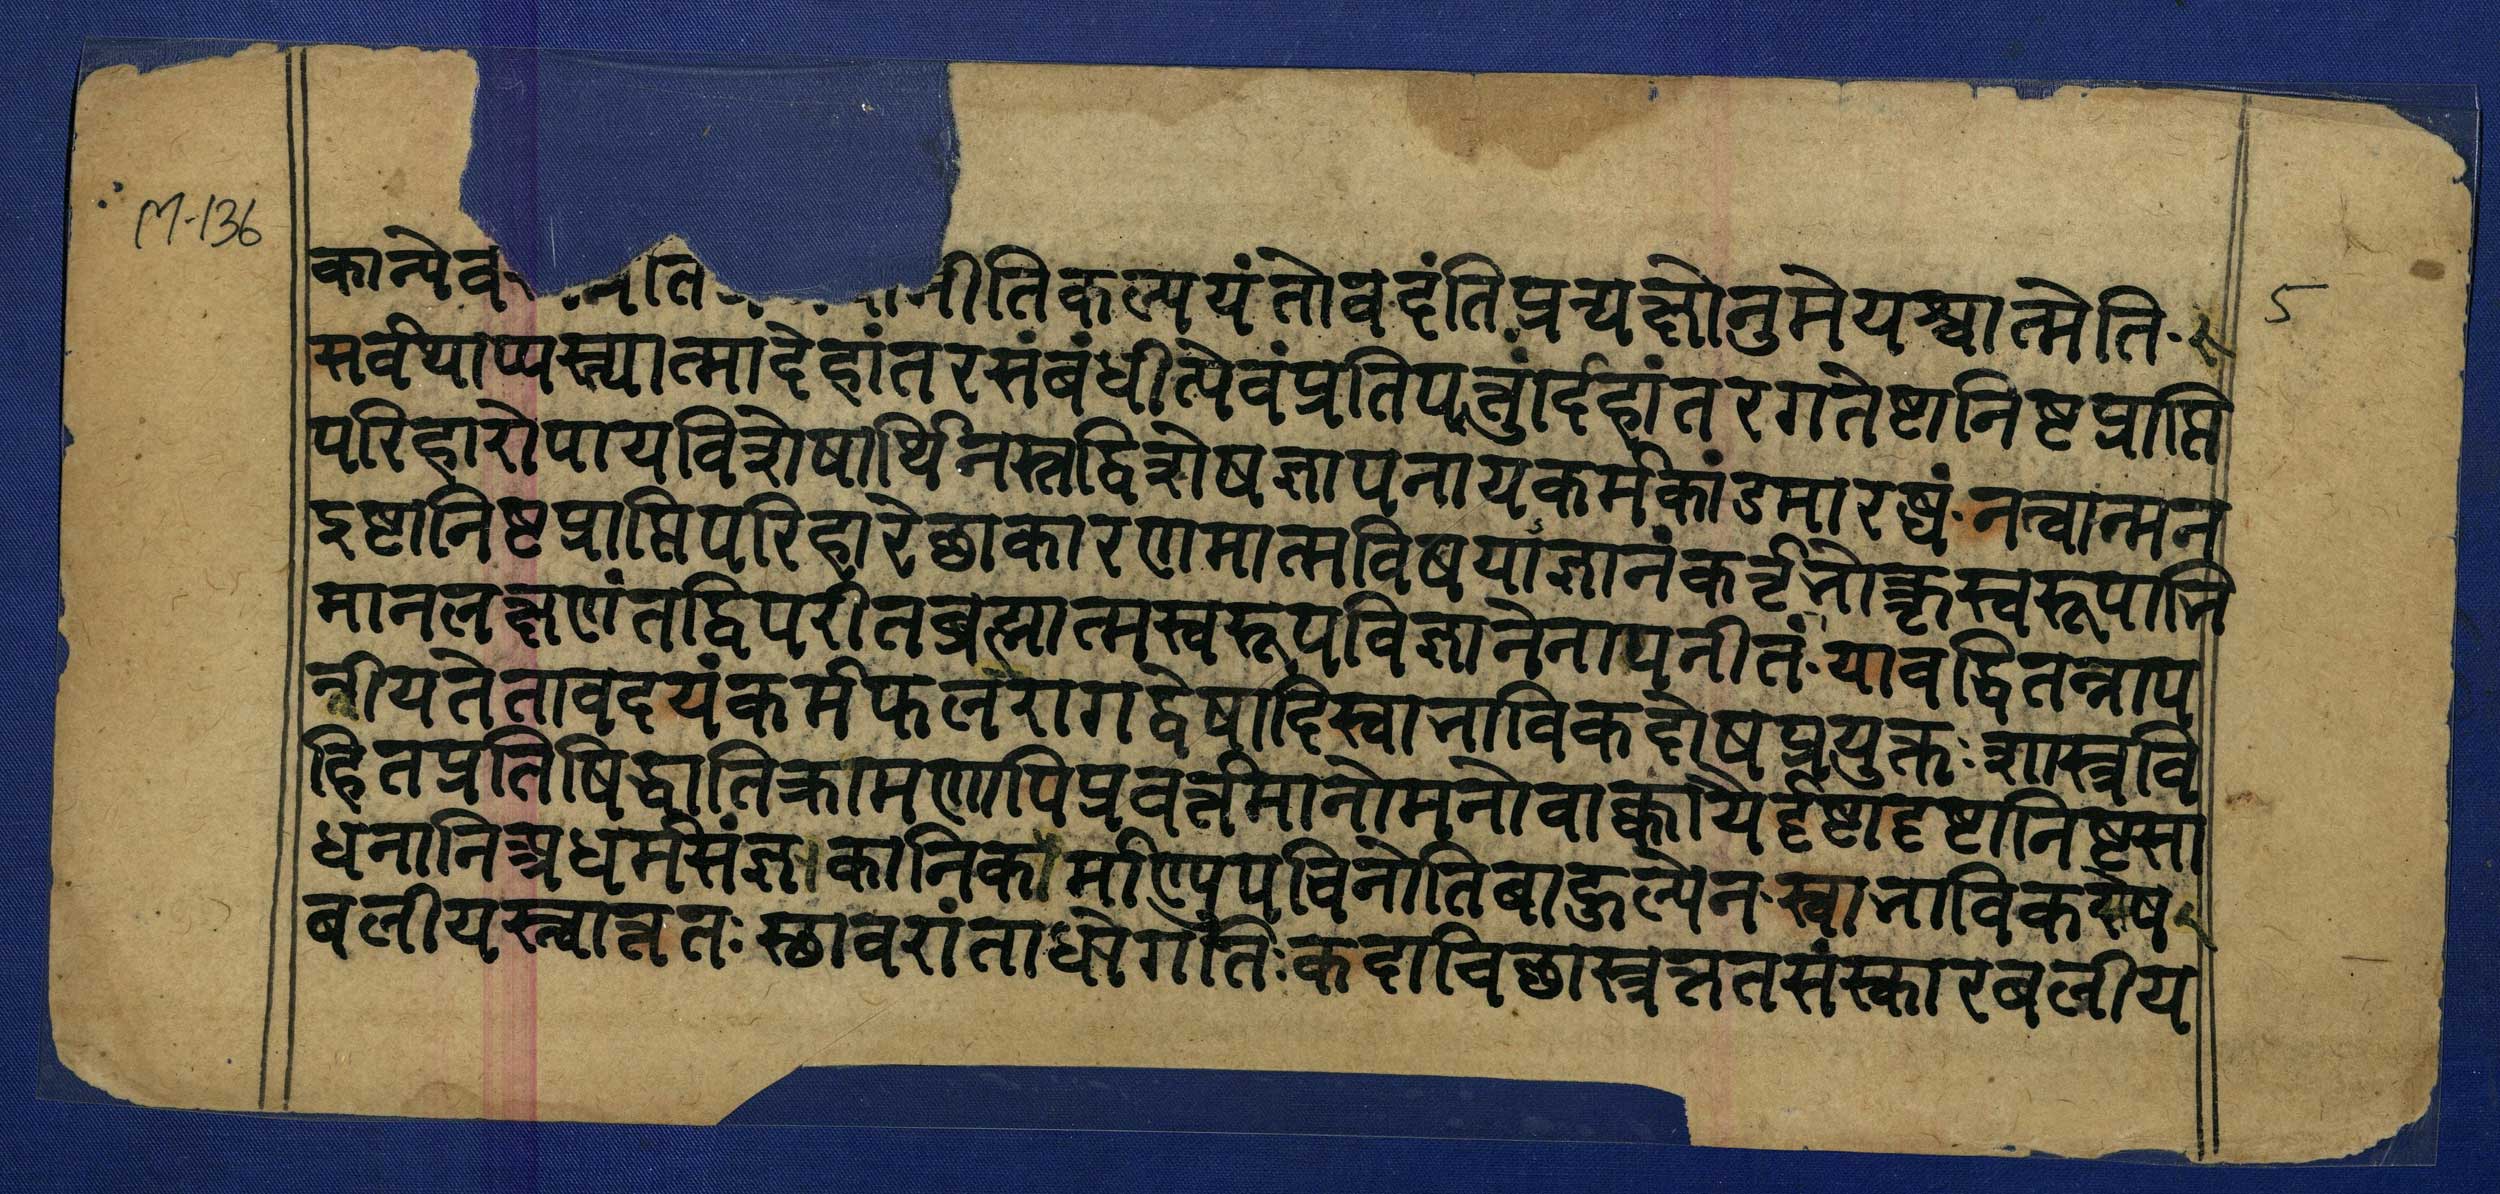 M-136
कान्येव नीतिकल्पयंतोवदंतिप्रत्यक्षोनुमेयश्चात्मेति
5
सर्वथाप्यस्त्यात्मादेहांतरसंबंधीत्येवंप्रतिपत्तुर्देहांतरगतेष्टानिष्टप्राप्ति
परिहारोपायविशेषार्थिनस्तद्विशेषज्ञापनायकर्मकांडमारब्धं॰नत्वात्मन
इष्टानिष्टप्राप्तिपरिहारेछाकारणमात्मविषयाज्ञानंकर्तृभोक्तृस्वरूपाभि
मानलक्षणंतद्विपरीतब्रह्मात्मस्वरूपविज्ञानेनापनीतं॰यावद्धितन्नाप
नीयतेतावदयंकर्मफलरागद्वेषादिस्वाभाविकदोषप्रयुक्तःशास्त्रवि
हितप्रतिषिद्धातिक्रामणापिप्रवर्त्तमानोमनोवाक्कायैर्दृष्टादृष्टानिष्टसा
धनानिअधर्मसंज्ञकानिकर्माण्युपचिनोतिबाहुल्येन॰स्वाभाविकदोष
बलीयस्त्वात्ततःस्छावरांताधोगतिःकदाचिछास्त्रकृतसंस्कारबलीय